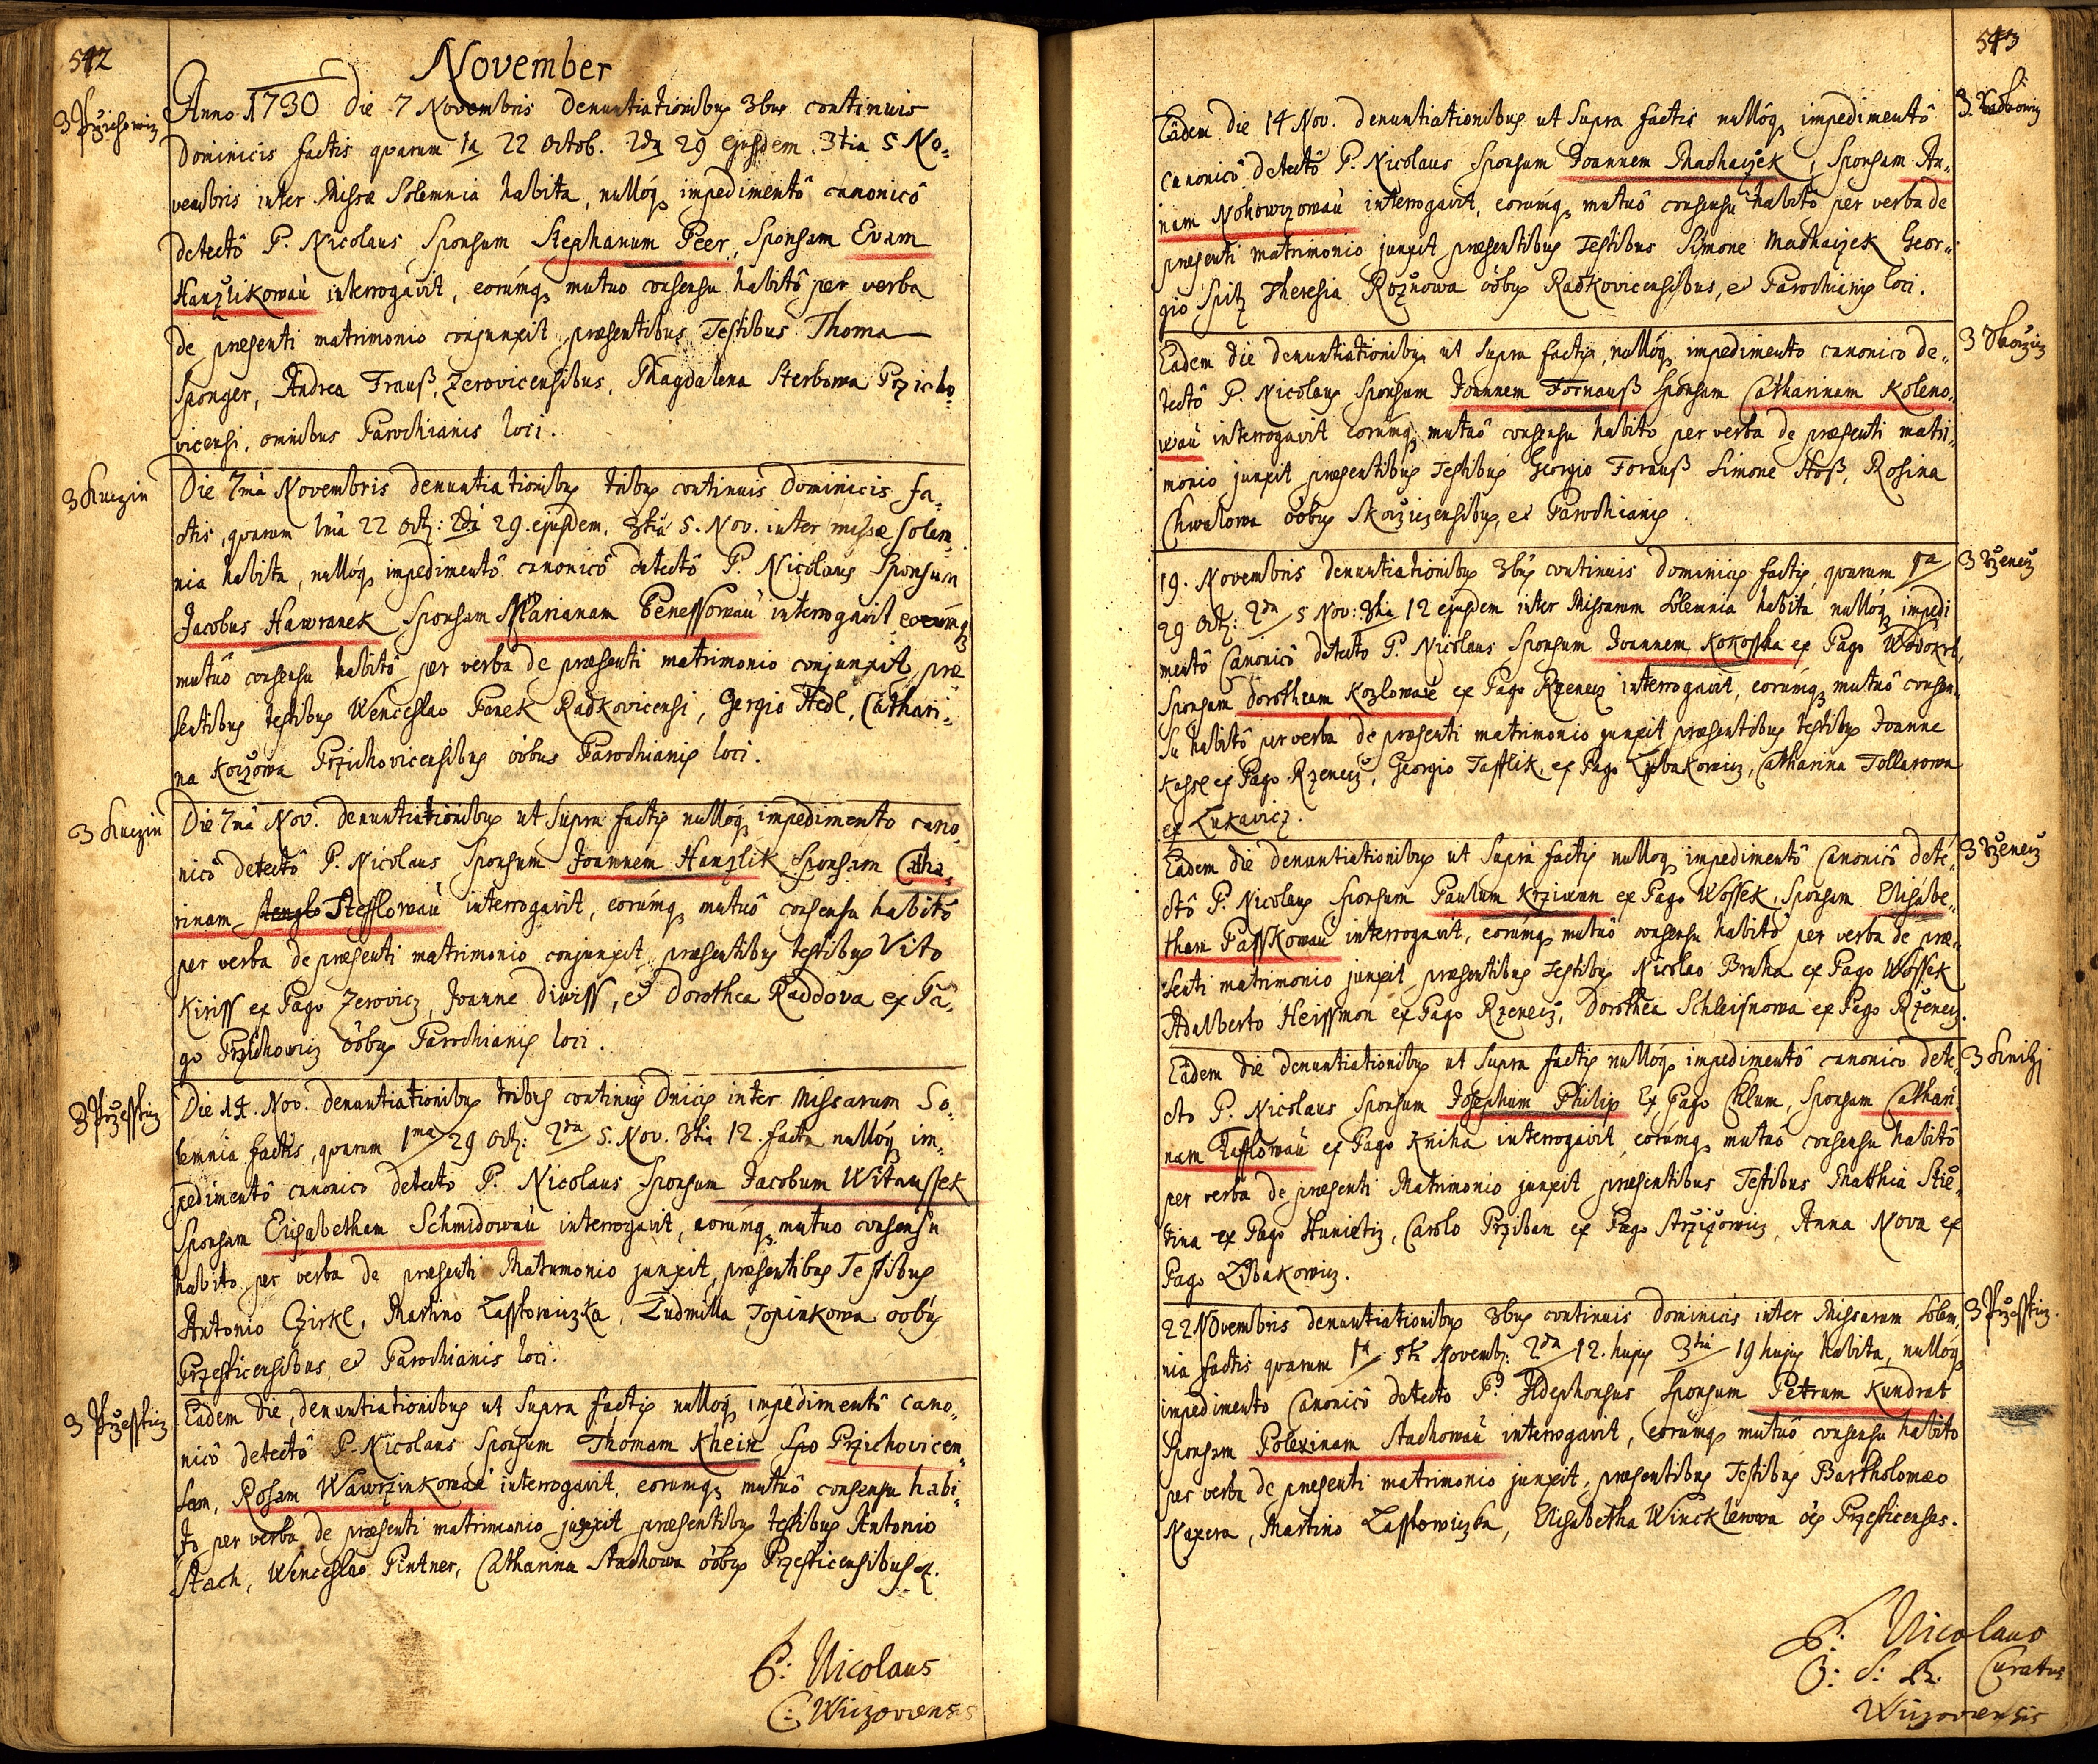 542
November
3 Przichowiz
Anno 1730 die 7 Novembris denuntiationibus 3bus continuis
Dominicis factis quarum 1a 22 Octob. 2da 29 ejusdem. 3tia 5 No„
vembris inter Missæ Solemnia habita, nullóq impedimentô canonicô
detectô P. Nicolaus Sponsum Stephanum Peer, Sponsam Evam
Hanzlikowaù interrogavit, eorúmq mutuo consensu habitô per verba
de præsenti matrimonio conjunxit præsentibus Testibus Thoma
Sponger, Andrea Frauß, Zerovicensibus, Magdalena Sterbowa Przicho„
vicensi, omnibus Parochianis loci.
3 Kuczin
Die 7mâ Novembris denuntiationibus tribus continuis Dominicis fa„
ctis, quarum 1mâ 22 Octb: 2dâ 29. ejusdem. 3tiâ 5. Nov. inter missæ solem„
nia habita, nullóq impedimentô canonicô detectô P. Nicolaus Sponsum
Jacobus Hawranek Sponsam Marianam Benessowaù interrogavit eorúmq
mutuô consensu habitô per verba de præsenti matrimonio conjunxit præ
sentibus testibus Wenceslao Panek Radkovicensi, Gergio Hedl, Cathari„
na Koczowa Przichovicensibus oôbus Parochianis loci.
3 Kuczin
Die 7mâ Nov. denuntiationibus ut supra factis nullóq impedimento cano„
nicô detectô P. Nicolaus Sponsum Joannem Hanzlik Sponsam Catha„
rinam Stefflowaù interrogavit, eorúmq mutuô consensu habitô
per verba de præsenti matrimonio conjunxit, præsentibus testibus Vito
Kiriss ex Pago Zerovicz, Joanne Diwiss, et Dorothea Raddova ex Pa„
go Przichowiz oôbus Parochianis loci.
3 Przesstiz
Die 14. Nov. denuntiationibus tribus continuis Dnicis inter Missarum So„
lemnia factis, quarum 1ma 29 Octb: 2da 5. Nov. 3tia 12. facta nullóq im„
pedimentô canonico detecto P. Nicolaus Sponsum Jacobum Witanssek
Sponsam Elisabetham Schmidowaù interrogavit, eorúmq mutuo consensu
habito per verba de præsenti Matrimonio junxit, præsentibus Testibus
Antonio Czirkl, Martino Lasstowiczka, Ludmilla Topinkowa oôbus
Przesticensibus, et Parochianis loci.
3 Przesstiz
Eadem die, denuntiationibus ut supra factis nullóq impedimentô cano„
nicô detectô P. Nicolaus Sponsum Thomam Khein Spo Przichovicen„
sem, Rosam Wawrzinkowaù interrogavit, eorumq mutuô consensu habi„
to per verba de præsenti matrimonio junxit præsentibus testibus Antonio
Stach, Wenceslao Pintner, Catharina Stachowa oôbus Przesticensibus
P: Nicolaus
C: Wiczoviensis
543
3. Radkowiz
Eâdem die 14 Nov. denuntiationibus ut supra factis nullóq impedimentô
canonicô detectô P. Nicolaus Sponsum Joannem Machaczek, Sponsam An„
nam Nohowczowaù interrogavit, eorúmq mutuô consensu habitô per verba de
præsenti matrimonio junxit præsentibus Testibus Simone Machaczek Geor„
gio Spitz Theresia Roznowa oôbus Radkovicensibus, et Parochianis loci.
3 Skoczicz
Eadem die denuntiationibus ut supra factis, nullóq impedimento canonico de„
tectô P. Nicolaus Sponsum Joannem Fornauß Sponsam Catharinam Koleno„
waù interrogavit eorúmq mutuô consensu habito per verba de præsenti matri„
monio junxit præsentibus Testibus Georgio Fornauß Simone Hoß, Rosina
Chwalowa oôbus Skoczicensibus, et Parochianis.
3 Rzenecz
19. Novembris denuntiationibus 3bus continuis dominicis factis, quarum 1a
29 Octb: 2da 5 Nov: 3tia 12 ejusdem inter Missarum Solemnia habita nullóq impedi
mentô Canonicô detecto P. Nicolaus Sponsum Joannem Kokosska ex Pago Wodokrt,
Sponsam Dorotheam Kozlowaù ex Pago Rzenecz interrogavit, eorúmq mutuô consen„
su habitô per verba de præsenti matrimonio junxit præsentibus testibus Joanne
Kassl ex Pago Rzenecz, Georgio Tafflik, ex Pago Zibakowicz, Catharina Tollarowa
ex Lukavicz.
3 Rzenecz
Eadem die denuntiationibus ut supra factis nullóq impedimentô Canonicô dete„
ctô P. Nicolaus Sponsum Paulum Krziwan ex Pago Wossek, Sponsam Elisabe„
tham Passkowaù interrogavit, eorúmq mutuô consensu habitô per verba de præ„
senti matrimonio junxit præsentibus Testibus Nicolao Bruha ex Pago Wossek
Adalberto Heissmon ex Pago Rzenecz, Dorothea Schleisnowa ex Pago Rzenecz.
3 Knihy
Eâdem die denuntiationibus ut supra factis nullóq impedimentô canonico dete„
cto P. Nicolaus Sponsum Josephum Philip Ex Pago Chlum, Sponsam Cathari„
nam Tafflowaù ex Pago Kniha interrogavit, eorúmq mutuô consensu habitô
per verba de præsenti Matrimonio junxit præsentibus Testibus Matthia Stie„
tina ex Pago Hunietiz, Carolo Prziban ex Pago Strzizowicz, Anna Nova ex
Pago Zibakowicz.
3 Przesstiz.
22 Novembris denuntiationibus 3bus continuis Dominicis inter Missarum Solem„
nia factis quarum 1a 5ta Novemb: 2da 12. hujus 3tia 19 hujus habita, nullóq
impedimento Canonicô detecto P. Ildephonsus Sponsum Petrum Kundrat
Sponsam Polexinam Stachowaù interrogavit, eorúmq mutuô consensu habito
per verba de præsenti matrimonio junxit, præsentibus Testibus Bartholomæo
Naxera, Martino Lasstowiczka, Elisabetha Wincklerowa oes Przesticenses.
P: Nicolaus
O: S: B. Curatus
Wiczoviensis